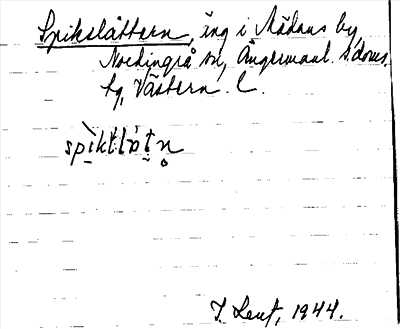 Spikslåttern, äng i Mädans by,
Nordingrå sn, Ångermanl. s. doms.
tg, Västern. l.
spìktlòtn
1944.